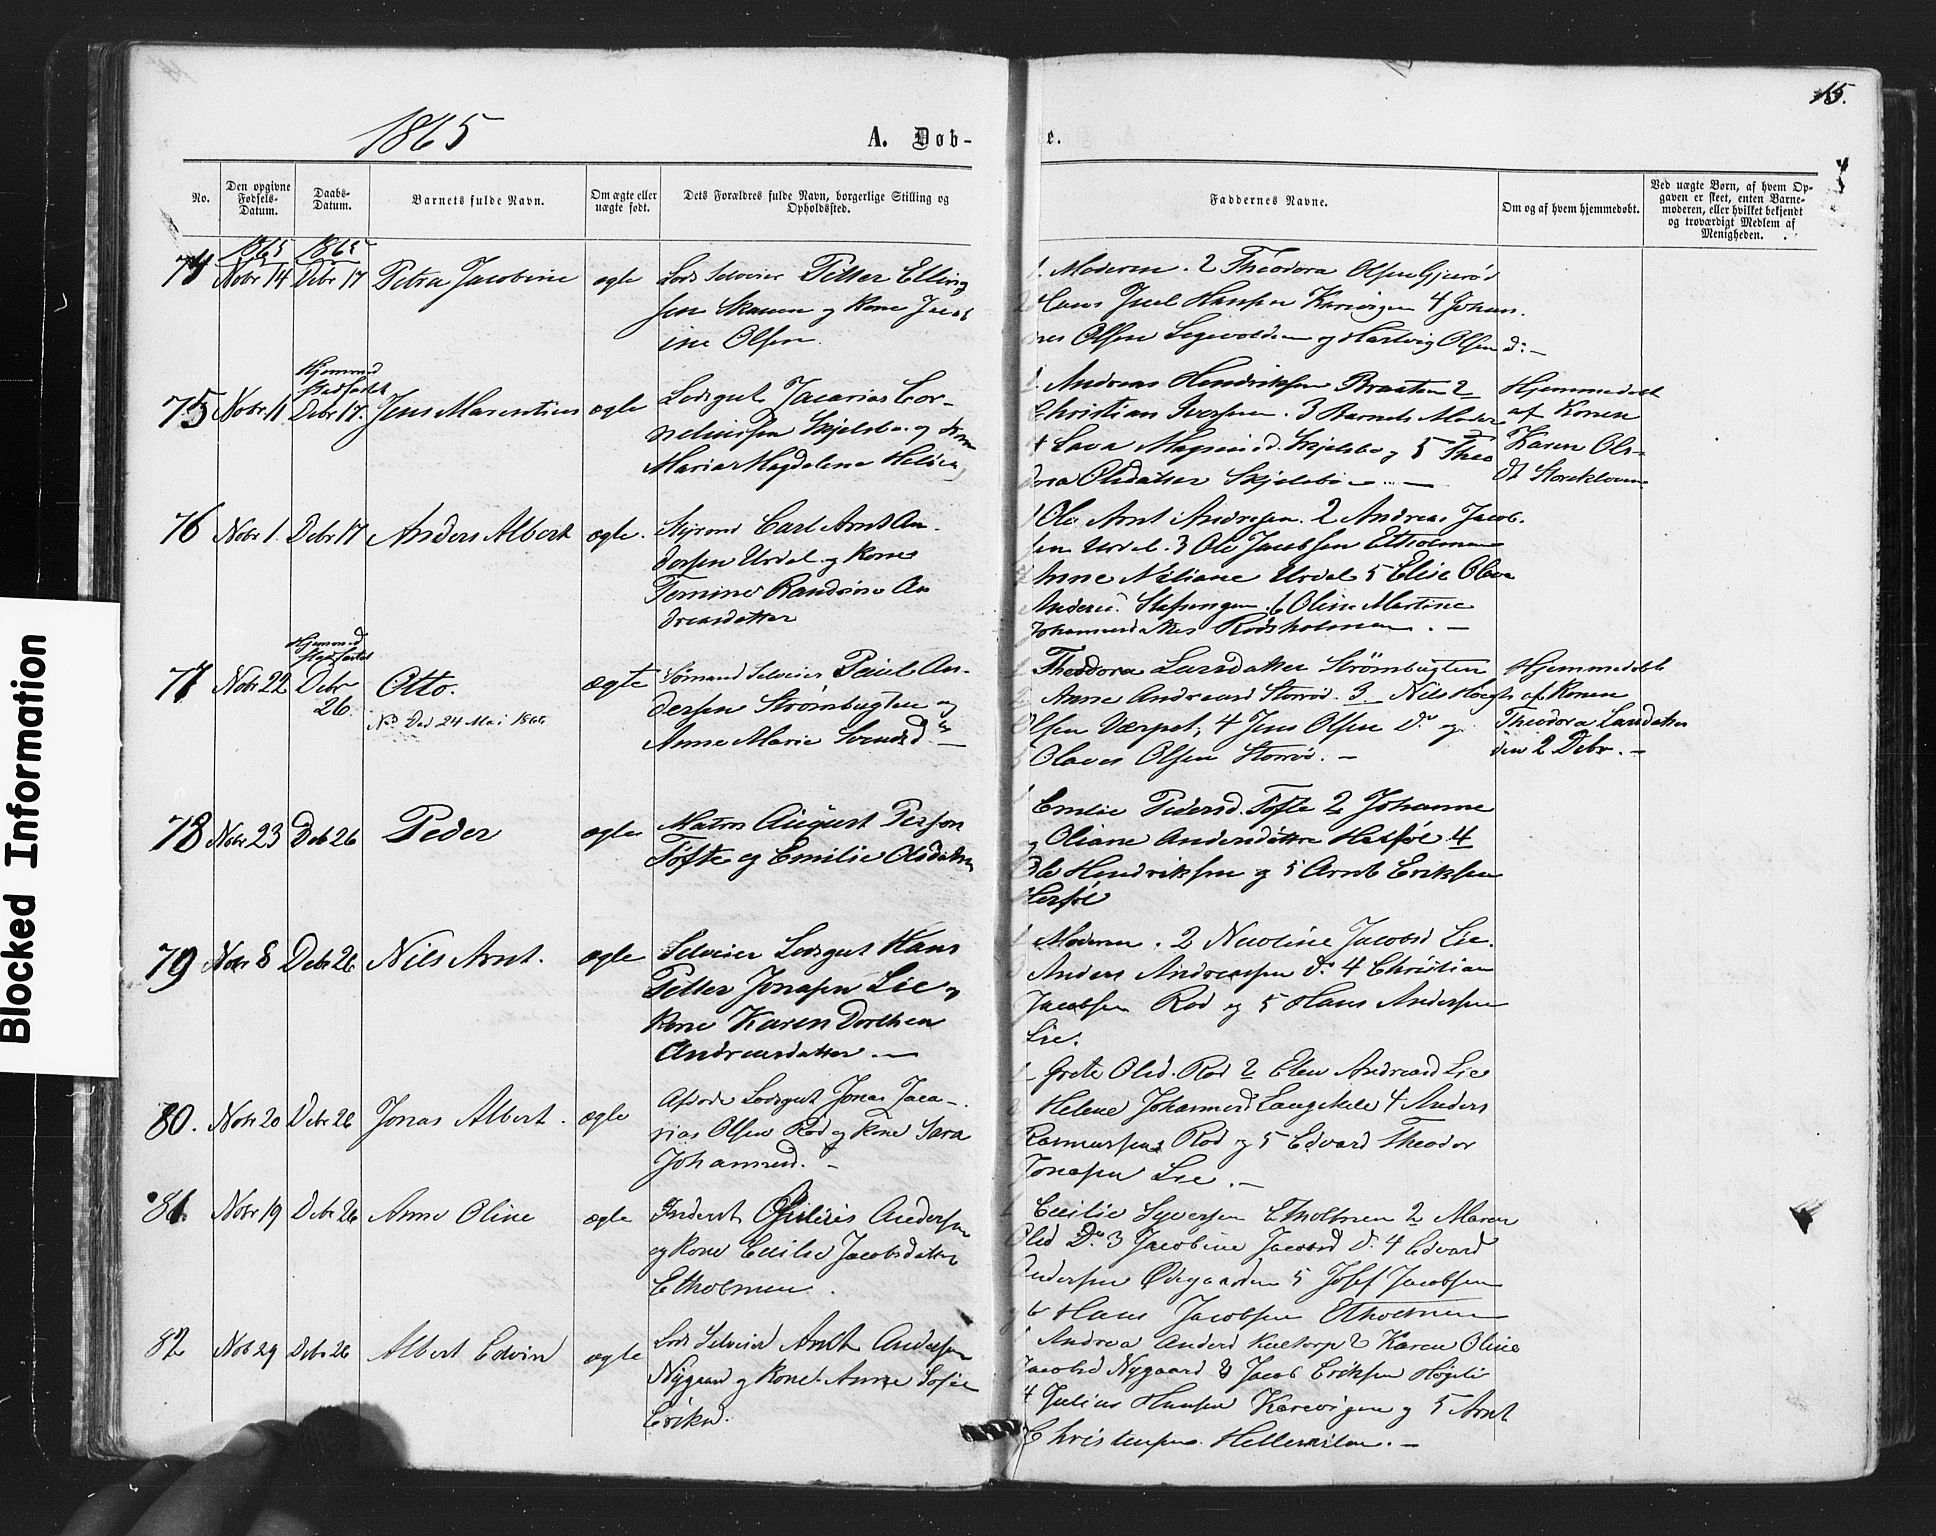 15.
1865
A. Døb-
e.
No.
Den opgivne Fødsels-Datum.
Daabs-Datum.
Barnets fulde Navn.
Om ægte eller uægte født.
Dets Forældres fulde Navn, borgerlige Stilling og Opholdssted.
Faddernes Navne.
Om og af hvem hjemmedøbt.
Ved uægte Børn, af hvem Opgaven er skeet, enten Barnemoderen, eller hvilket bekjendt og troværdigt Medlem af Menigheden.
1865 1865
74 Nobr 14 Debr 17 Petra Jacobine ægte
Lods Selveier Petter Elling
sen Skauen og Kone Jacob
ine Olsen.
1. Moderen. 2 Theodora Olsen Gjerød
Claus Juel Hansen Karvigen 4 Johan
nes Olsen Segevolden og Hartvig Olsen d: –
Hjemmed
stadfæstet
75 Nobr 11 Debr 17. Jens Marentius ægte
Lodsgut Jacarias Cor-
neliussen Skjelsbo og Kone
Maria Magdalena
1. Andreas Hendriksen Braaten 2
Christian Iversen. 3 Barnets Moder
4 Lava Magnusd. Skjelsbo og 5 Theo
dora Olsdatter Skjelsbo –
Hjemmedøbt
af Konen
Karen Ols-
dt Storekloven
76 Nobr 1. Debr 17 Anders Albert ægte.
Styrmd Carl Arnt An
dersen Urdal og Kone
Tomine Randine An
dreasdatter
1 Ole Arnt Andresen. 2 Andreas Jacob.
sen Urdal. 3 Ole Jacobsen Etholmen
4 Anne Niliane Urdal 5 Elise Olava
Anders. Stafengen. 6 Oline Martine
Johannesdatter Rødsholmen. –
Hjemmed
stadfæstet
77 Nobr 22 Debr 26. Otto. ægte
NB Død 24 Mai 1866
Sømand Selveier Paul An-
dersen Strømbugten og
Anne Marie Svendsd. –
1 Theodora Larsdatter Strømbugten
2 Anne Andreasd Storrød. 3 Nils Hoegh
Olsen Værpet, 4 Jens Olsen Do og
5 Olaves Olsen Storrød. –
Hjemmedøbt
af Konen
Theodora Larsdatter
den 2 Debr. –
78 Nobr 23 Deb 26 Peder ægte
Matros August Person
Tøfte og Emilie Olsdatter
1 Emilie Pedersd. Tøfte 2 Johanne
og Oliane Andersdøttre Hersøl 4
Ole Hendriksen og 5 Arnt Eriksen
Hersøl
79 Nobr 8 Debr 26 Nils Arnt. ægte
Selveier Lodsgut Hans
Petter Jonasen Lie og
Kone Karen Dorthea
Andreasdatter. –
1 Moderen. 2 Nicoline Jacobsd Lie.
3 Anders Andreassen do 4 Christian
Jacobsen Rød og 5 Hans Andersen
Lie.
80. Nobr 20 Debr 26 Jonas Albert. ægte
Afdøde Lodsgut Jonas Jaca-
rias Olsen Rød og Kone Sara
Johannesd. –
1 Grete Olsd. Rød 2 Elen Andreasd Lie
3 Helene Johannesd Langekile 4 Anders
Rasmussen Rød og 5 Edvard Theodor
Jonasen Lie. –
81. Nobr 19 Debr 26 Anne Oline ægte
Inderst Andersen
og Kone Cecilie Jacobsdatter
Etholmen.
1 Cecilie Syversen Etholmen 2 Maren
Olsd Do 3 Jacobine Jacobsd Do 4 Edvard
Andersen Ødegaarden 5 Josef Jacobsen
og 6 Hans Jacobsen Etholmen
82 Nob 29 Deb 26 Albert Edvin ægte
Lods Selveier Arndt Andersen
Nygaard og Kone Anne Sofie
Eriksd.
1 Andrea Andersd Kultorp 2 Karen Oline
Jacobsd Nygaard 3 Jacob Eriksen Høgeli
4 Julius Hansen Karevigen og 5 Arnt
Christensen Hellekilen. –
Blocked Information